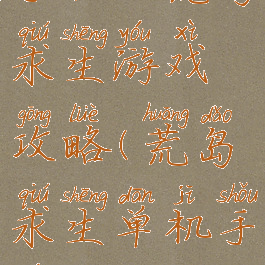 qiú shēng yóu xì
求生游戏
gōng lüè huāng dǎo
攻略(荒岛
qiú shēng dān jī shǒu
求生单机手